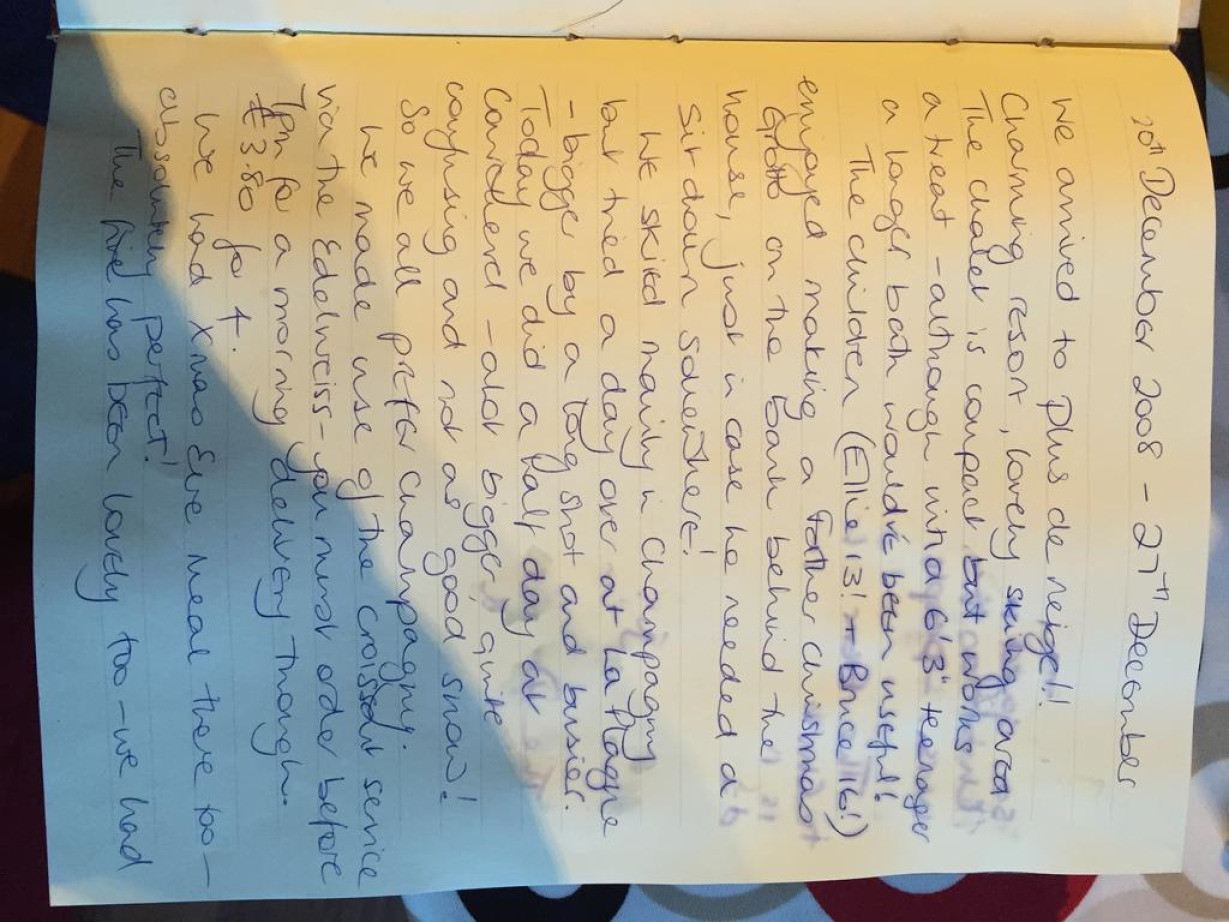 20th December 2008 - 27th December
We arrived to Plus de neige!!
Charming resort, lovely skiing area
The chalet is compact but works
a treat - although with a 6'3" teenager
a longer bath would've been useful!
The children (Ellie 13! Bruce 16!)
enjoyed making a Father Christmas
Grotto on the bank behind the
house, just in case he needed a
sit down somewhere!
We skied mainly in Champagny
but tried a day over at La Plagne
- bigger by a long shot and busier.
Today we did a half day at
Courchevel - alot bigger, quite
confusing and not as good snow!
So we all prefer Champagny.
We made use of the croissant service
via the Edelweiss - you must order before
7pm for a morning delivery though.
€3.80 for 4.
We had Xmas Eve meal there too -
absolutely perfect!
The fire has been lovely too - we had